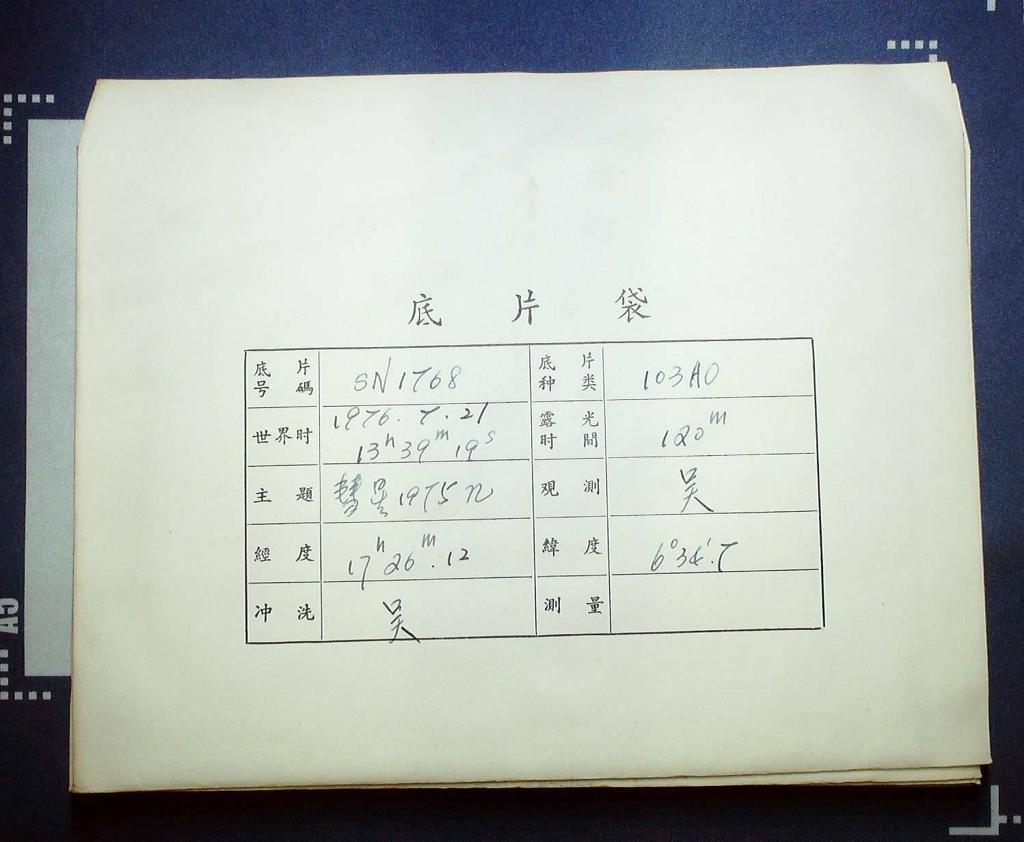 底 片 袋
底 片 号 碼 SN1768 底 片 种 类 103AO
世界时 1976.7.21 13h39m19s 露 光 时 間 120m
主 題 彗星1975n 观 測 吴
經 度 17h26m.12 緯 度 6°34'.7
冲 洗 吴 測 量
A5